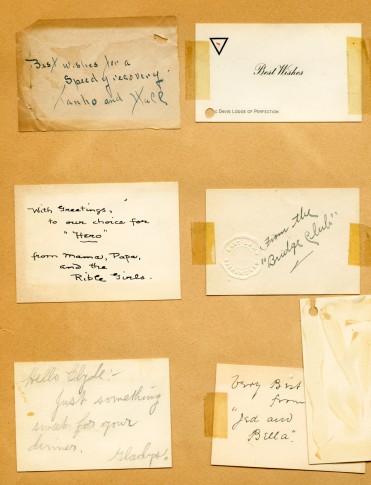 Best wishes for a
Speedy recovery.
and
Best Wishes
Davis Lodge of Perfection
With Greetings,
to our choice for
"Hero"
from Mama, Papa,
and the
Rible Girls.
From the
"Bridge Club"
Hello Clyde:-
Just something
sweet for your
dinner.
Gladys.
Very Best
from
"Jed and
Billa".